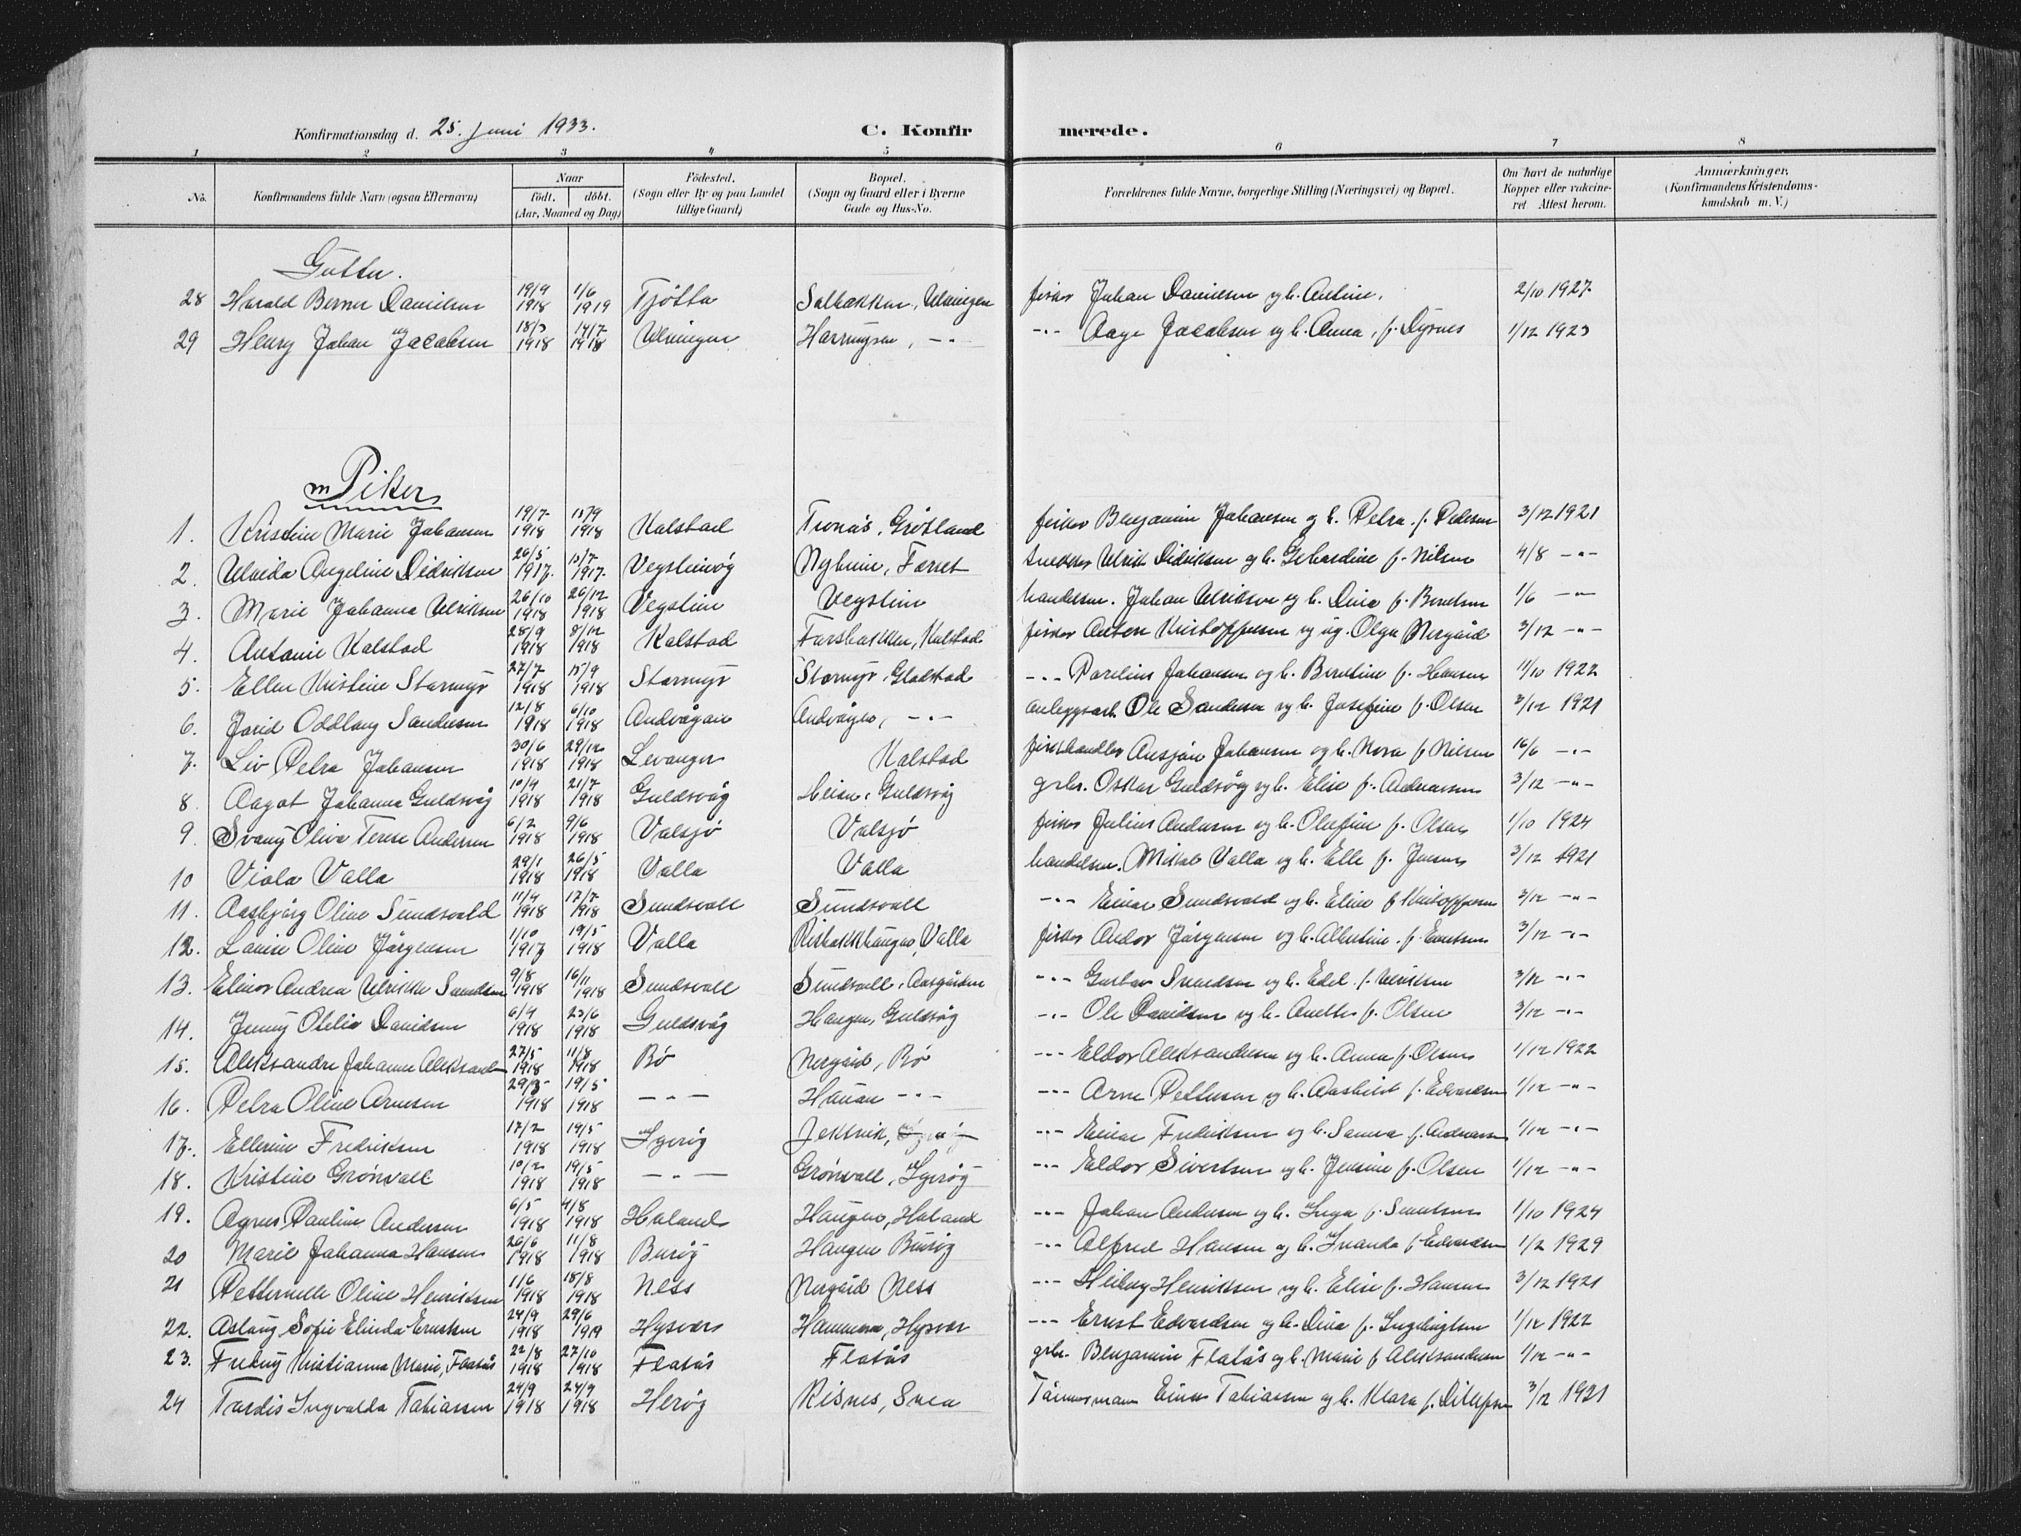 Konfirmationsdag d. 25. Juni 1933. C. Konfirmerede.
1 2 3 4 5 6 7 8
No. Konfirmandens fulde Navn (ogsaa Efternavn) Naar født. døbt. (Aar, Maaned og Dag) Fødested. (Sogn eller By og paa Landet tillige Gaard) Bopæl. (Sogn og Gaard eller i Byerne Gade og Hus-No. Forældrenes fulde Navne, borgerlige Stilling (Næringsvei) og Bopæl. Om havt de naturlige Kopper eller vaccineret Attest herom. Anmærkninger, (Konfirmandens Kristendomskundskab m. V.)
Gutter.
28 Harald Berner Danielsen 19/9 1918 1/6 1919 Tjøtta fisker Johan Danielsen og h. Antine. 2/10 1927
29 Henry Johan Jacobsen 18/3 1918 14/7 1918 -"- Aage Jacobsen og h. Anna, f. Dyrnes 1/12 1923
Piker
1. Kristine Marie Johansen 19/7 1918 1918 Kalstad Tronås, Grøtland fisker Benjamin Johansen og h. Petra f. Pedersen 3/12 1921
2. Angeline Didriksen 26/5 1917 1917 Nyheim, Færset snekker Ulrik Didriksen og h. Gerhardine f. Nilsen 4/8 -"-
3. Marie Johanna Ulriksen 26/10 1918 26/12 1918 Vegstein Vegstein handelsm. Johan Ulriksen og h. Dina f. Berntsen 1/6 -"-
4. Antonie Kalstad 28/9 1918 8/12 1918 Kalstad Forsbakken, Kalstad fisker Anton Kristoffersen og ug. Olga Nergård 3/12 -"-
5. Ellen Kristine Stormyr 27/7 1918 15/9 1918 Stormyr Stormyr, Gladstad -"- Parelius Johansen og h. Berntine f. Hansen 11/10 1922
6. Jorid Oddlaug Sandersen 12/8 1918 6/10 1918 Andvågan Andvågen, -"- anleggsarb. Ole Sandersen og h. Josefine f. Olsen 3/12 1921
7. Liv Petra Johansen 30/6 1918 29/12 1918 Levanger Kalstad fiskehandler Ansjøn Johansen og h. Nora f. Nilsen 16/6 -"-
8. Aagot Johanna Guldsvåg 10/4 1918 21/7 1918 Guldsvåg Heian, Guldsvåg grbr. Oskar Guldsvåg og h. Elise f. Andreassen 3/12 -"-
9 Svany Oliva Terese Andersen 6/2 1918 9/6 1918 Valsjø Valsjø fisker Julius Andersen og h. Olufine f. Olsen 1/10 1924
10 Viola Valla 29/1 1918 26/5 1918 Valla Valla handelsm. Mikal Valla og h. Elle f. Jensen 3/12 1921
11. Aasbjørg Oline Sundsvold 11/4 1918 17/7 1918 Sundsvoll Sundsvoll -"- Einar Sundsvold og h. Eline f. Kristoffersen 3/12 -"-
12. Lovise Oline Jørgensen 1/10 1917 19/5 1918 Valla Risbakkhaugen, Valla fisker Andor Jørgensen og h. Albertine f. 3/12 -"-
13. Elinor Andrea Ulrikke Svendsen 9/8 1918 16/11 1918 Sundsvoll Sundsvoll, Aasgården -"- Gustav Svendsen og h. Edel f. Ulriksen 3/12 -"-
14. Jenny Otilie Davidsen 6/4 1918 23/6 1918 Guldsvåg Haugen, Guldsvåg -"- Ole Davidsen og h. Anette f. Olsen 3/12 -"-
15. Aleksandre Johanne Aleksandersen 27/5 1918 11/8 1918 Bø Nergård, Bø -"- Eldor Aleksandersen og h. Anna f. Olsen 1/12 1922
16. Petra Oline Arnesen 29/3 1918 19/5 1918 -"- Hauan -"- -"- Arne Pettersen og h. Aashild f. Edvardsen 1/12 -"-
17. Ellerine Fredriksen 17/2 1918 19/5 1918 Igerøy Jektvik -"- Einar Fredriksen og h. Sanna f. Andreassen 1/12 -"-
18. Kristine Grønvoll 10/2 1918 19/5 1918 -"- Grønvoll, Igerøy -"- Eldor Sivertsen og h. Jensine f. Olsen 1/12 -"-
19. Agnes Pauline Andersen 6/5 1918 4/8 1918 Holand Haugen, Holand -"- Johan Andersen og h. Inga f. 1/10 1924
20 Marie Johanna Hansen 26/6 1918 11/8 1918 Burøy Haugen Burøy -"- Alfred Hansen og h. Ivanda f. Edvardsen 1/2 1929
21 Petternelle Oline Henriksen 1/6 1918 18/8 1918 Ness Nergård Ness -"- Heiberg Henriksen og h. Elise f. Hansen 3/12 1921
22. Aslaug Sofie Elinda Ernstsen 24/9 1918 29/6 1919 Hysvær Hammeren, Hysvær -"- Ernst Edvardsen og h. Dina f. Ingebrigtsen 1/12 1922
23. Fredny Kristianna Marie, Flatås 22/8 1918 27/10 1918 Flatås Flatås grbr. Benjamin Flatås og h. Marie f. Aleksandersen 1/12 -"-
24 Tordis Ingvalda Tobiassen 24/9 1918 24/9 1918 Herøy Risnes, Sura Einar Tobiassen og h. Klara f. Ditlefsen 3/12 1921